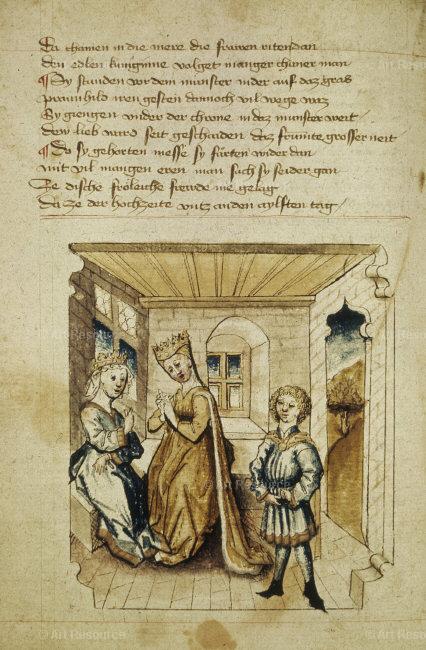 Da chamen in die mere die frawen riten dan
den edlen kunginne valget manger chuner man
¶ Sy stunden vor dem munster nider auf daz gras
praunhild iren gesten dannoch vil wege waz
Sy giengen vnder der chrone in daz munster weit
dew lieb ward seit geschaiden daz frumte grosser neit
¶ Do sy gehorten messe sy furten wider dan
mit vil mangen eren man sach sy seider gan
Ze dische fröleiche frewde nie gelag
Da ze der hochzeite vntz an den aylften tag /
© Art Resource
© Art Resource